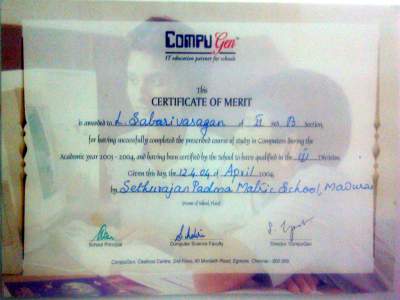 COMPUGen
IT education partner for schools
This
CERTIFICATE OF MERIT
is awarded to L. Sabarivasagan of II std B Section,
for having successfully completed the prescribed course of study in Computers during the
Academic year 2003 - 2004, and having been certified by the School to have qualified in the III Division.
Given this day, the 12.4.04 of April 2004
by Sethurajan Padma Matric School, Madurai
(name of School, Place)
School Principal
Computer Science Faculty
Director CompuGen
CompuGen, Cealtool Centre, 2nd Floor, 80 Montieth Road, Egmore, Chennai - 600 008